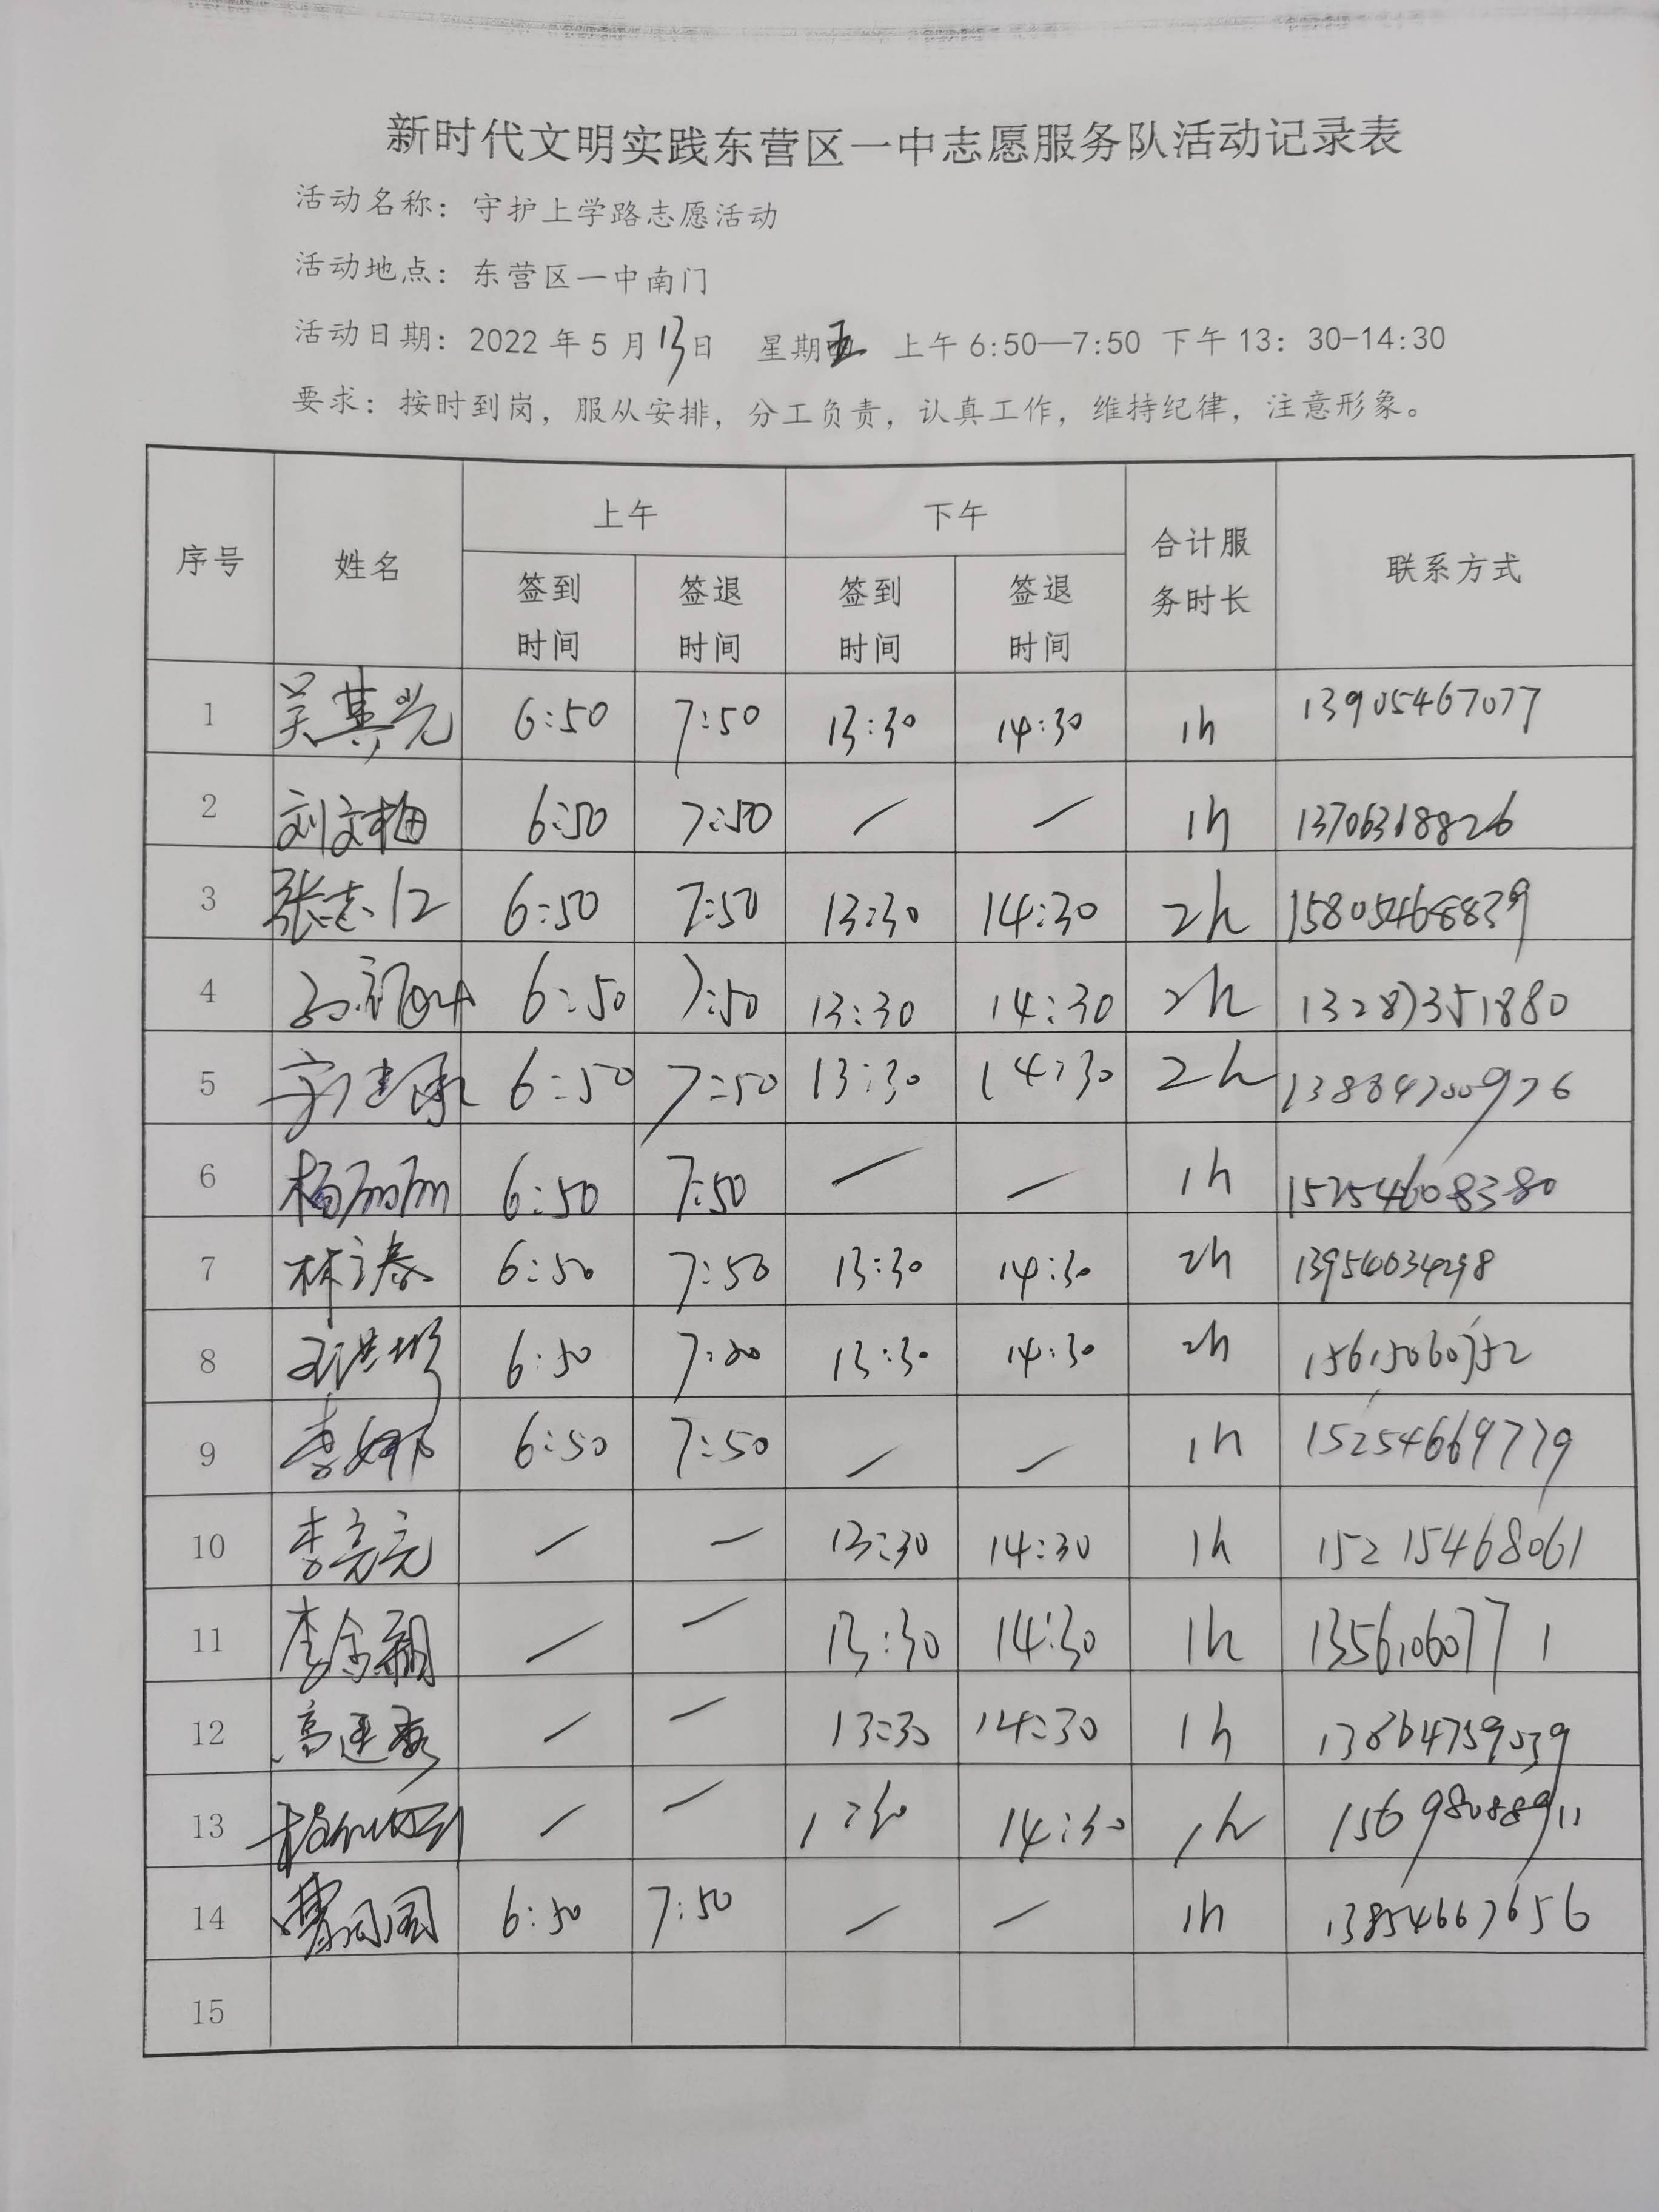 新时代文明实践东营区一中志愿服务队活动记录表
活动名称：守护上学路志愿活动
活动地点：东营区一中南门
活动日期：2022年5月13日 星期五 上午6:50—7:50 下午13：30-14:30
要求：按时到岗，服从安排，分工负责，认真工作，维持纪律，注意形象。
序号 姓名 上午 下午 合计服务时长 联系方式
签到时间 签退时间 签到时间 签退时间
1 吴其光 6:50 7:50 13:30 14:30 1h 13905467077
2 刘文梅 6:50 7:50 — — 1h 13706368826
3 张志仁 6:50 7:50 13:30 14:30 2h 15805468839
4 6:50 7:50 13:30 14:30 2h 13287351880
5 6:50 7:50 13:30 14:30 2h
6 杨丽丽 6:50 7:50 — — 1h 15254608380
7 林立春 6:50 7:50 13:30 14:30 2h 13954634298
8 6:50 13:30 14:30 2h 15615060752
9 李娜 6:50 7:50 — — 1h 15254669779
10 李亮亮 — — 13:30 14:30 1h 15215468061
11 — — 13:30 14:30 1h 13561060771
12 — — 13:30 14:30 1h 13864759539
13 — — 14:30 1h 15698088911
14 曹同国 6:50 7:50 — — 1h 13854667656
15